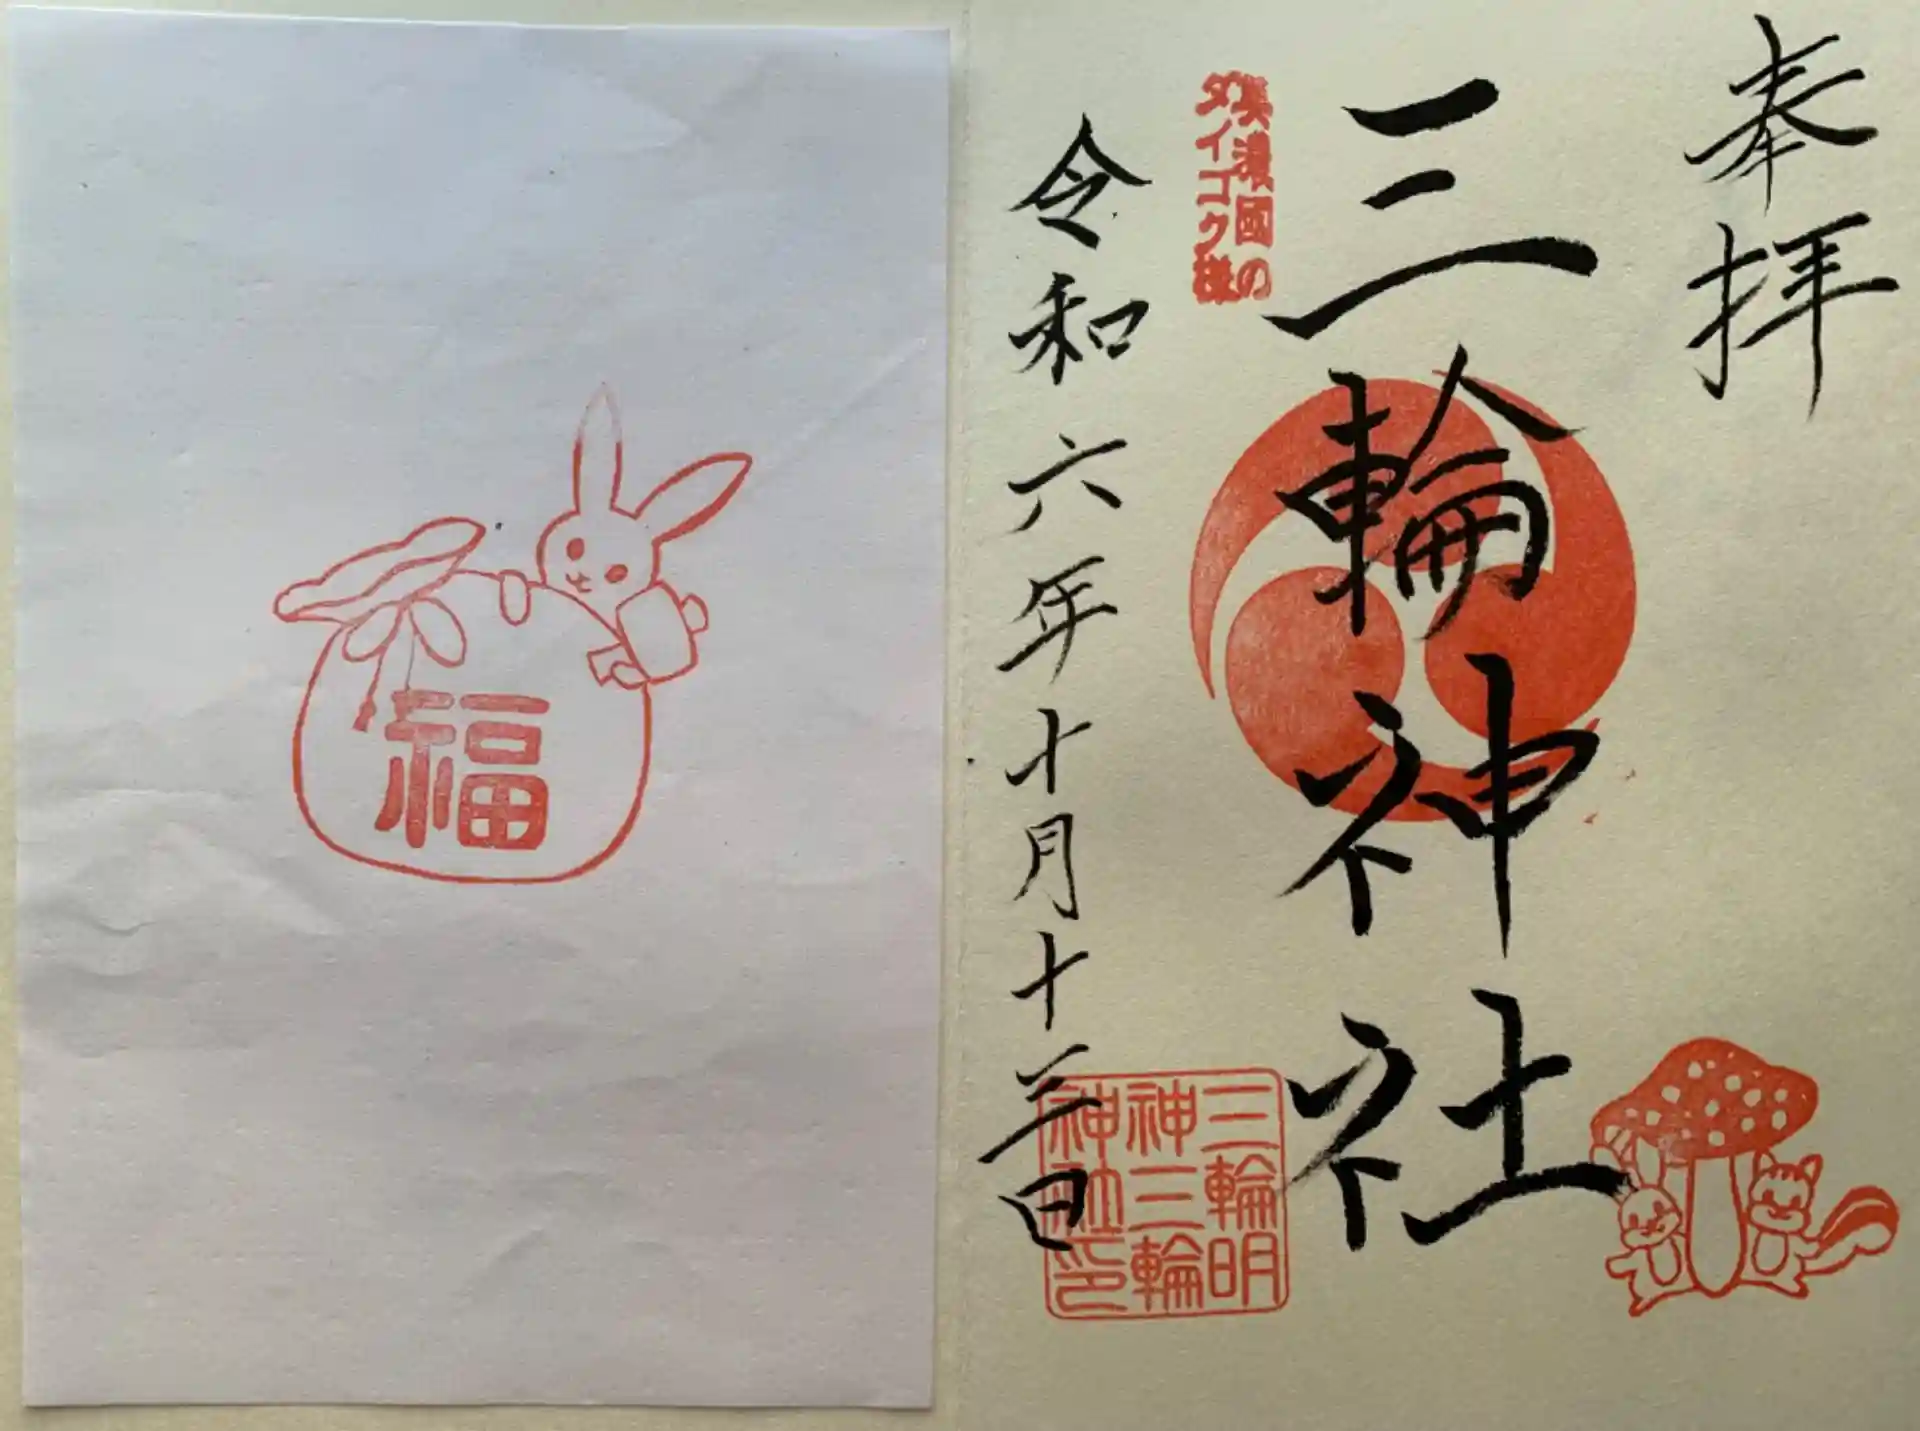 奉拝
三輪神社
美濃國の
ダイコク様
令和六年十月十三日
三輪明
神三輪
神社印
福